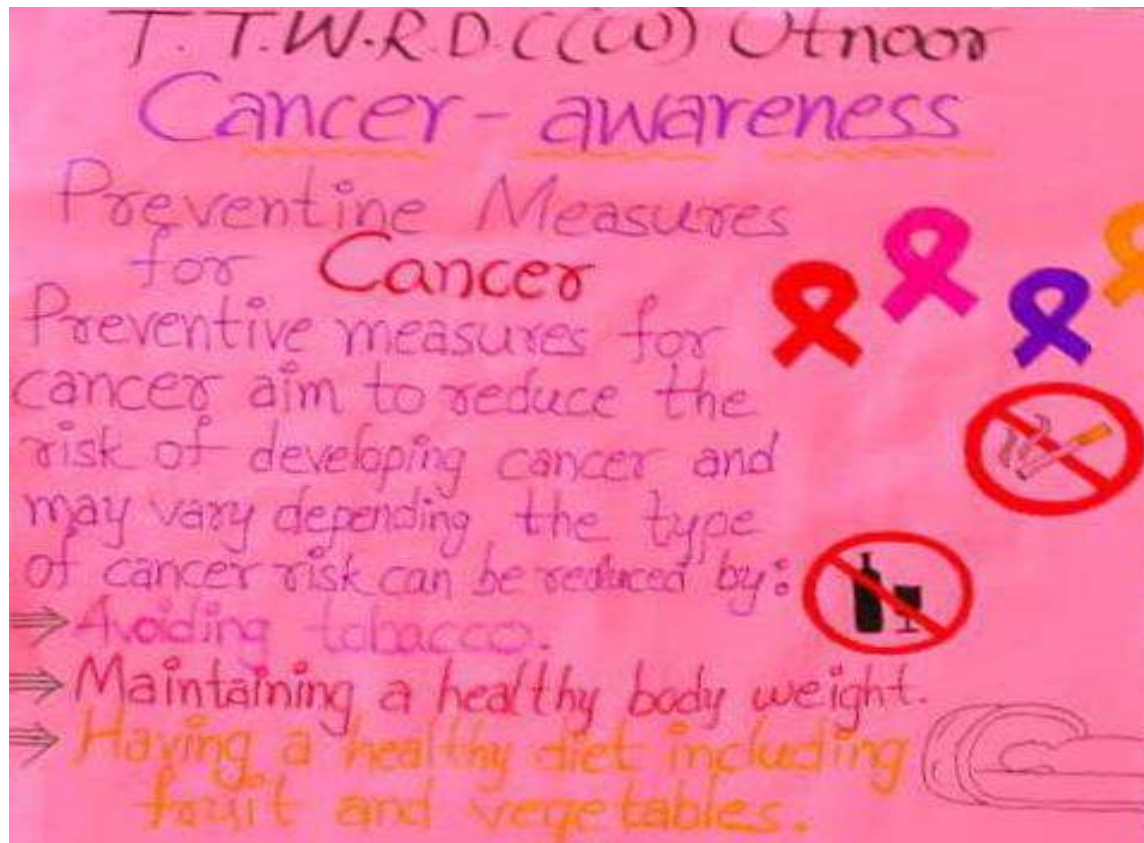 T.T.W.R.D.C((W) Utnoor
Cancer - awareness
Preventine Measures
for Cancer
Preventive measures for
cancer aim to reduce the
risk of developing cancer and
may vary depending the type
of cancer risk can be reduced by:
⇒ Avoiding tobacco.
⇒ Maintaining a healthy body weight.
⇒ Having a healthy diet including
fruit and vegetables.